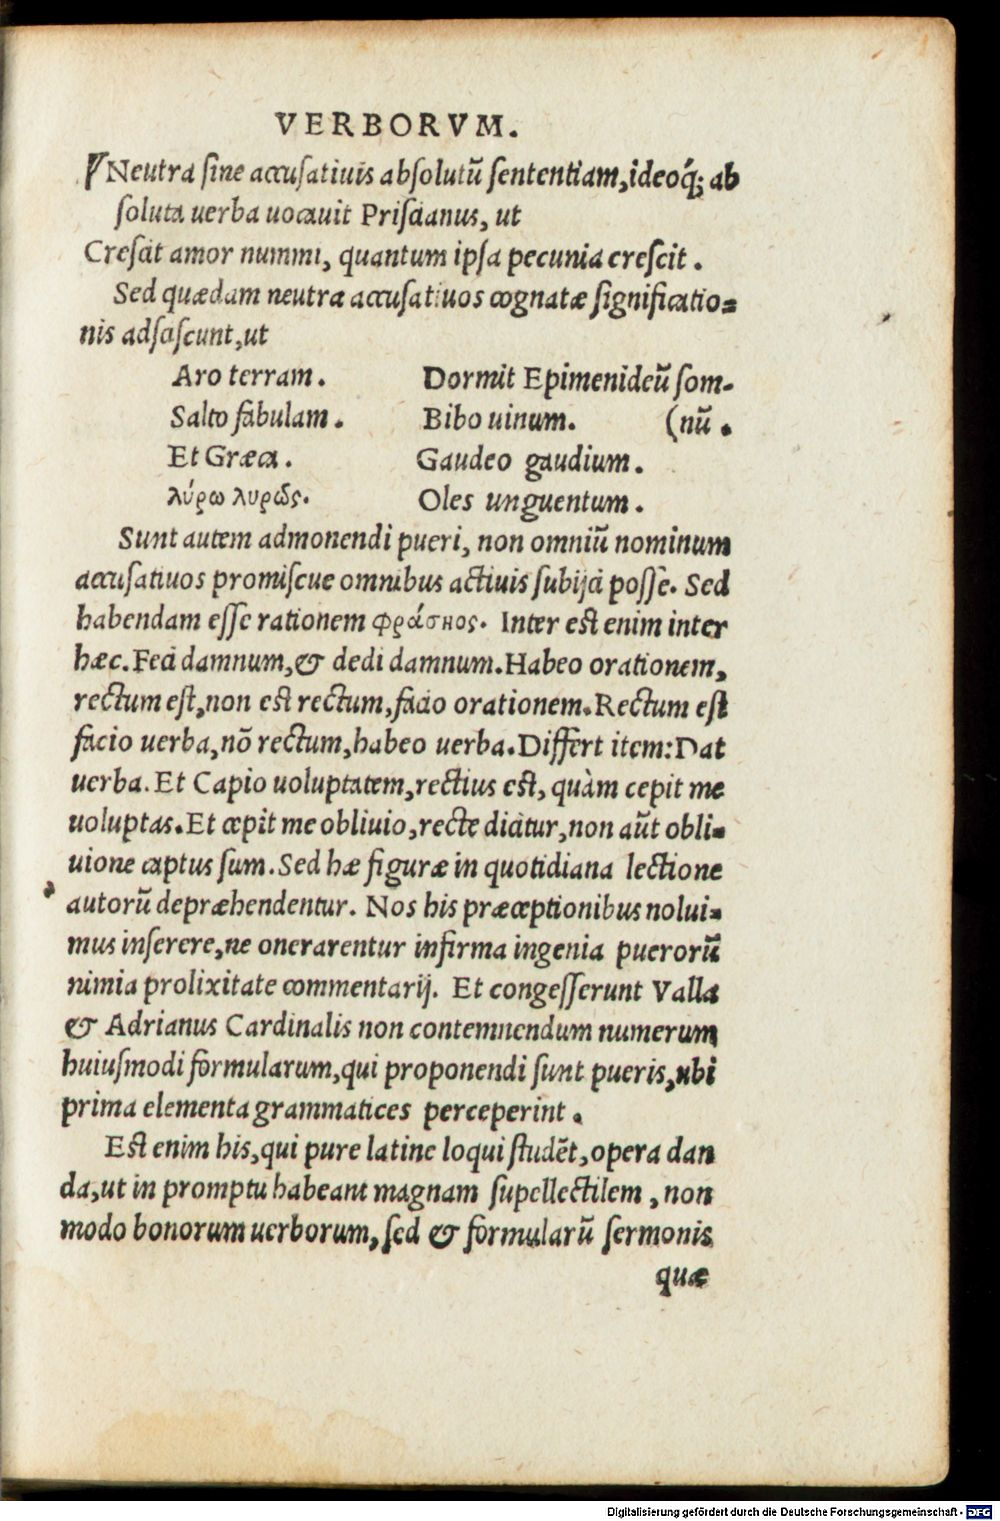 VERBORVM.
Neutra sine accusatiuis absolutũ sententiam, ideoq́; ab
soluta uerba uocauit Priscianus, ut
Crescit amor nummi, quantum ipsa pecunia crescit.
Sed quædam neutra accusatiuos cognatæ significatio=
nis adsciscunt, ut
Aro terram. Dormit Epimenideũ som-
Salto fabulam. Bibo uinum. (nũ.
Et Græca. Gaudeo gaudium.
Oles unguentum.
Sunt autem admonendi pueri, non omniũ nominum
accusatiuos promiscue omnibus actiuis subijci posse. Sed
habendam esse rationem φράσηος. Inter est enim inter
hæc. Feci damnum, & dedi damnum. Habeo orationem,
rectum est, non est rectum, facio orationem. Rectum est
facio uerba, nõ rectum, habeo uerba. Differt item: Dat
uerba. Et Capio uoluptatem, rectius est, quàm cepit me
uoluptas. Et cepit me obliuio, recte dicitur, non aũt obli=
uione captus sum. Sed hæ figuræ in quotidiana lectione
autorũ depræhendentur. Nos his præceptionibus nolui=
mus inserere, ne onerarentur infirma ingenia puerorũ
nimia prolixitate commentarij. Et congesserunt Valla
& Adrianus Cardinalis non contemnendum numerum
huiusmodi formularum, qui proponendi sunt pueris, ubi
prima elementa grammatices perceperint.
Est enim his, qui pure latine loqui studẽt, opera dan
da, ut in promptu habeant magnam supellectilem, non
modo bonorum uerborum, sed & formularũ sermonis
quæ
Digitalisierung gefördert durch die Deutsche Forschungsgemeinschaft - DFG